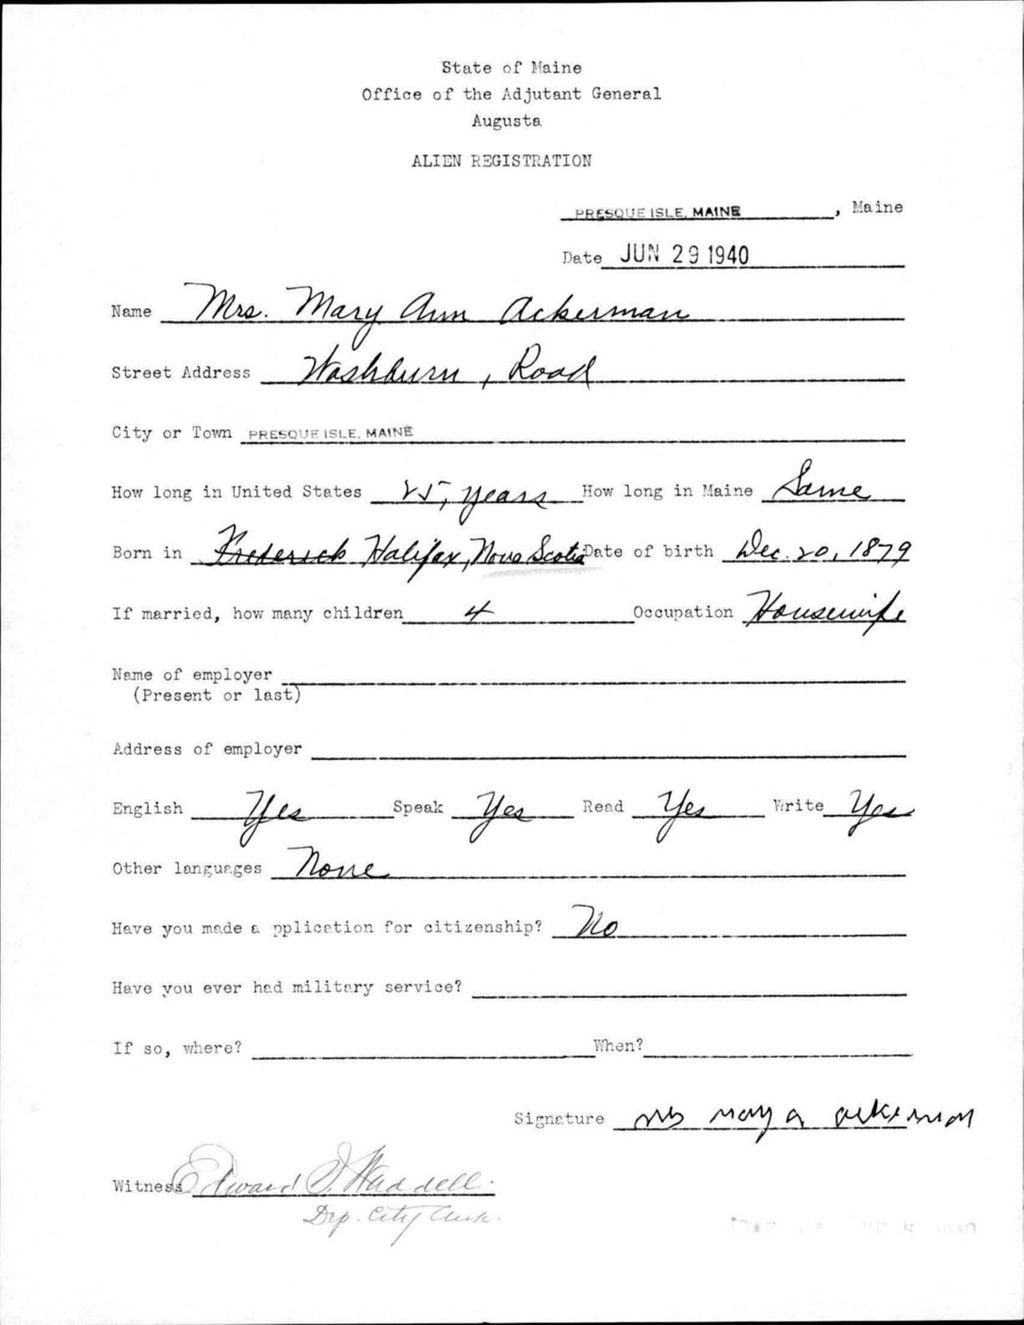 State of Maine
Office of the Adjutant General
Augusta
ALIEN REGISTRATION
PRESQUE ISLE, MAINE, Maine
Date JUN 29 1940
Name Mrs. Mary Ann Ackerman
Street Address Washburn, Road
City or Town PRESQUE ISLE, MAINE
How long in United States 25, years How long in Maine Same
Born in Frederick Halifax, Nova Scotia Date of birth Dec. 20, 1879
If married, how many children 4 Occupation Housewife
Name of employer
(Present or last)
Address of employer
English Yes Speak Yes Read Yes Write Yes
Other languages None
Have you made a pplication for citizenship? No
Have you ever had military service?
If so, where? When?
Signature Mrs Mary A Ackerman
Witness Edward J. Waddell.
Dep. City Clerk.